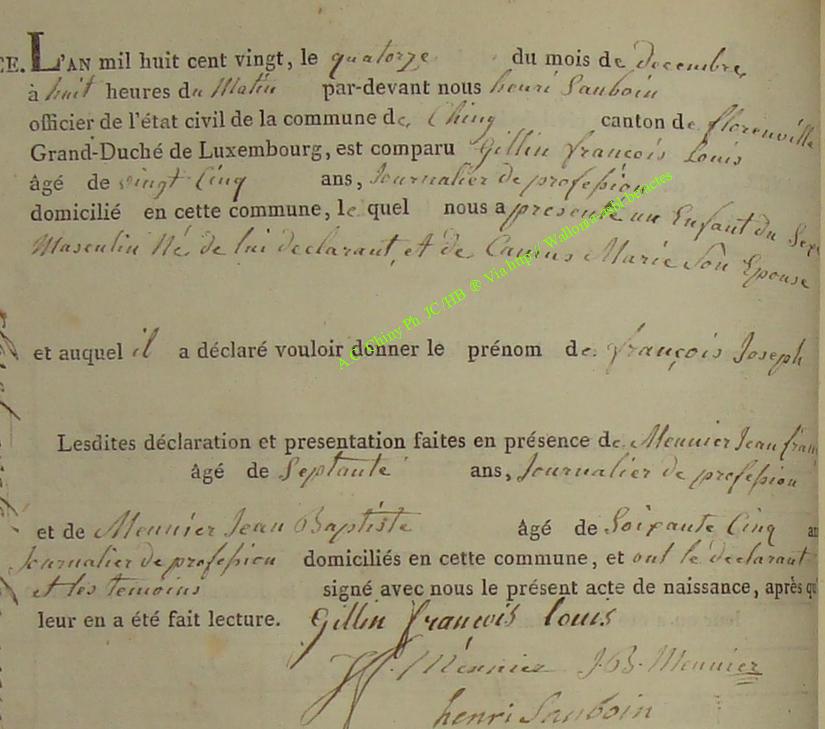 CE. L'AN mil huit cent vingt, le quatorze du mois de decembre,
à huit heures du Matin par-devant nous henri Sauboin
officier de l'état civil de la commune de Chiny canton de florenville
Grand-Duché de Luxembourg, est comparu Gillin françois Louis
âgé de vingt Cinq ans, Journalier de profession
domicilié en cette commune, le quel nous a presenté un Enfant du Sexe
Masculin Né de lui declarant, et de Camus Marie Son Epouse
et auquel il a déclaré vouloir donner le prénom de françois Joseph
Lesdites déclaration et presentation faites en présence de Meunier Jean fran
âgé de Septante ans, Journalier de profession
et de Meunier Jean Baptiste âgé de Soixante Cinq an
Journalier de profession domiciliés en cette commune, et ont le declarant
et les temoins signé avec nous le présent acte de naissance, après qu
leur en a été fait lecture. Gillin françois louis
Meunier J.B. Meunier
henri Sauboin
A C Chiny Ph JC/HB ® Via http:// Wallonia.asbl.be/actes